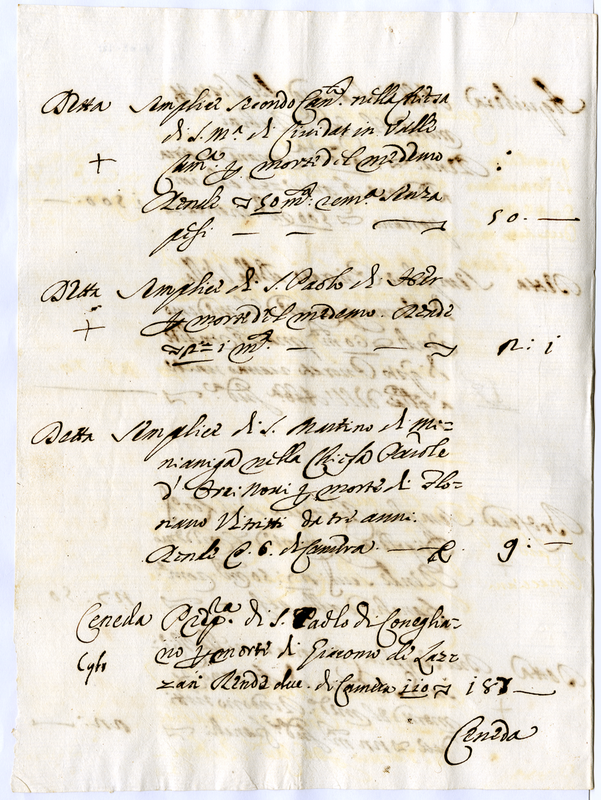 Detta Semplice secondo Can.to nella Chiesa
di S. M.a di Cividat in Valle
+ Cam.a p morte del medemo
Rende 50 m.ta rem.a senza
pesi — — 50: —
Detta Semplice di S. Paolo di
+ p morte del medemo. Rende
1 m.ta — — n: 1
Detta Semplice di S. Martino di Mi-
nianiga nella Chiesa Par̃ole
d' p morte di Flo-
riano Vitritti da tre anni.
Rende 6. di Camera. — 9: —
Ceneda Prep.ra di S. Paolo di Coneglia-
no p morte di Giacomo di Laz-
zari Rende duc. di Camera 110
Ceneda